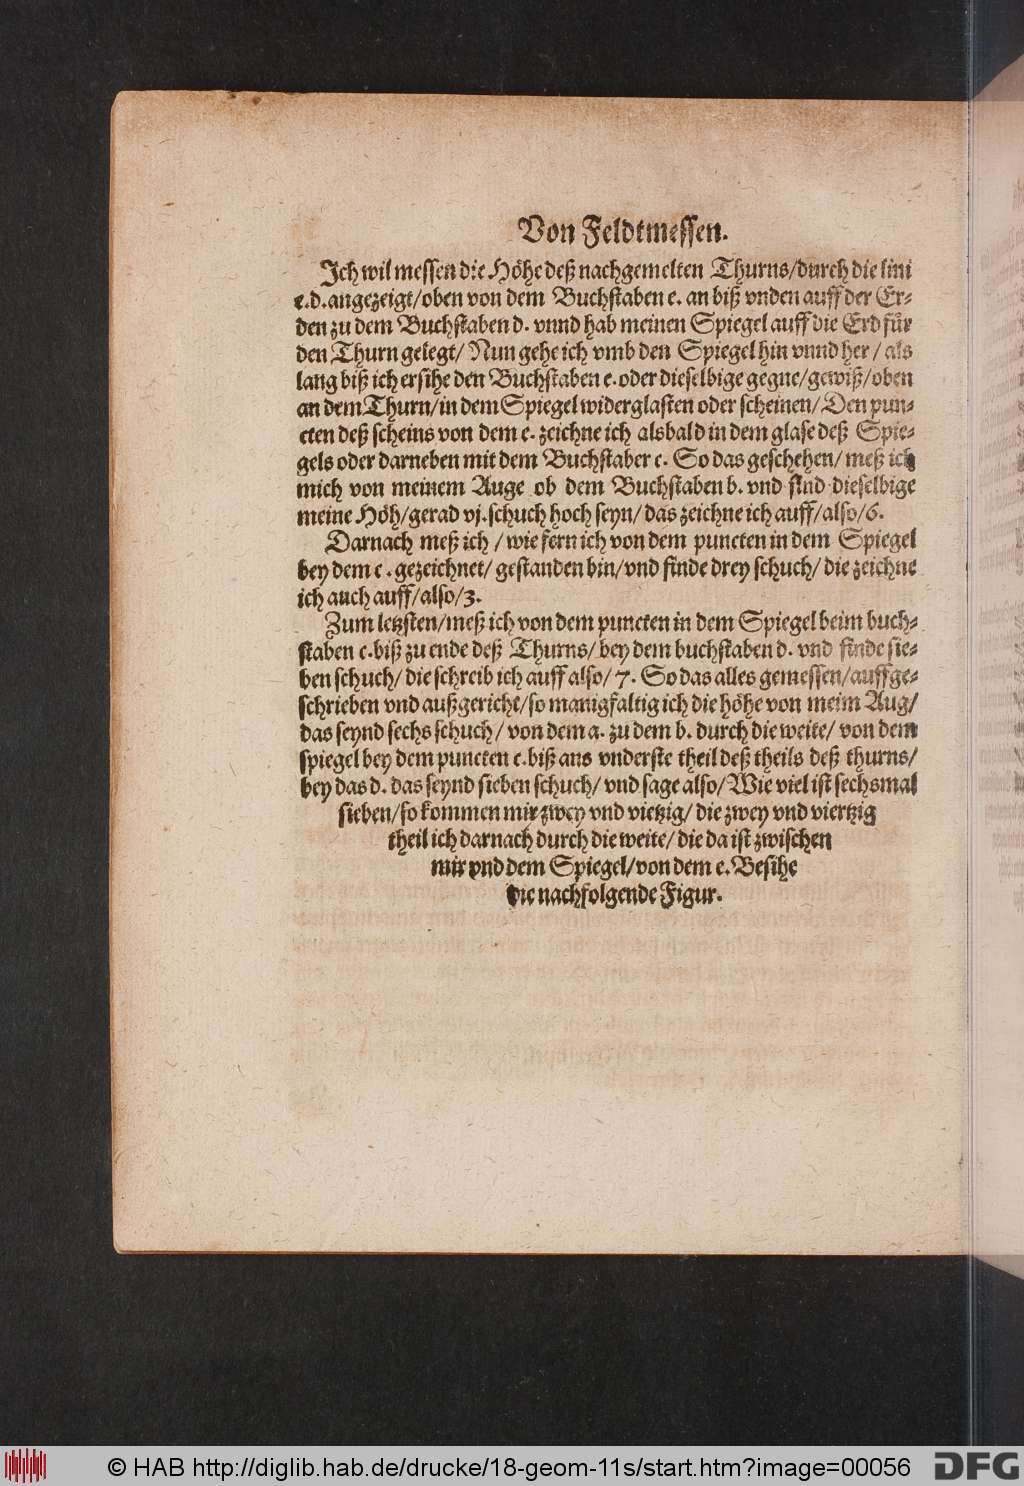 Von Feldtmessen.
Ich wil messen die Höhe deß nachgemelten Thurns/durch die lini
e.d.angezeigt/oben von dem Buchstaben e. an biß vnden auff der Er-
den zu dem Buchstaben d. vnnd hab meinen Spiegel auff die Erd für
den Thurn gelegt/ Nun gehe ich vmb den Spiegel hin vnnd her / als
lang biß ich ersihe den Buchstaben e.oder dieselbige gegne/gewiß/oben
an dem Thurn/in dem Spiegel widerglasten oder scheinen/ Den pun-
cten deß scheins von dem e. zeichne ich alsbald in dem glase deß Spie-
gels oder darneben mit dem Buchstaber c. So das geschehen/ meß ich
mich von meinem Auge ob dem Buchstaben b. vnd find dieselbige
meine Höh/gerad vj.schuch hoch seyn/ das zeichne ich auff/also/6.
Darnach meß ich / wie fern ich von dem puncten in dem Spiegel
bey dem c . gezeichnet/ gestanden bin/vnd finde drey schuch/ die zeichne
ich auch auff/also/3.
Zum letzsten/meß ich von dem puncten in dem Spiegel beim buch-
staben c.biß zu ende deß Thurns/ bey dem buchstaben d. vnd finde sie-
ben schuch/ die schreib ich auff also/ 7. So das alles gemessen/auffge-
schrieben vnd außgericht/so manigfaltig ich die höhe von meim Aug/
das seynd sechs schuch/ von dem a. zu dem b. durch die weite/ von dem
spiegel bey dem puncten c.biß ans vnderste theil deß theils deß thurns/
bey das d. das seynd sieben schuch/ vnd sage also/ Wie viel ist sechsmal
sieben/so kommen mir zwey vnd vietzig/ die zwey vnd viertzig
theil ich darnach durch die weite/ die da ist zwischen
mir vnd dem Spiegel/von dem e. Besihe
die nachfolgende Figur.
© HAB http://diglib.hab.de/drucke/18-geom-11s/start.htm?image=00056
DFG